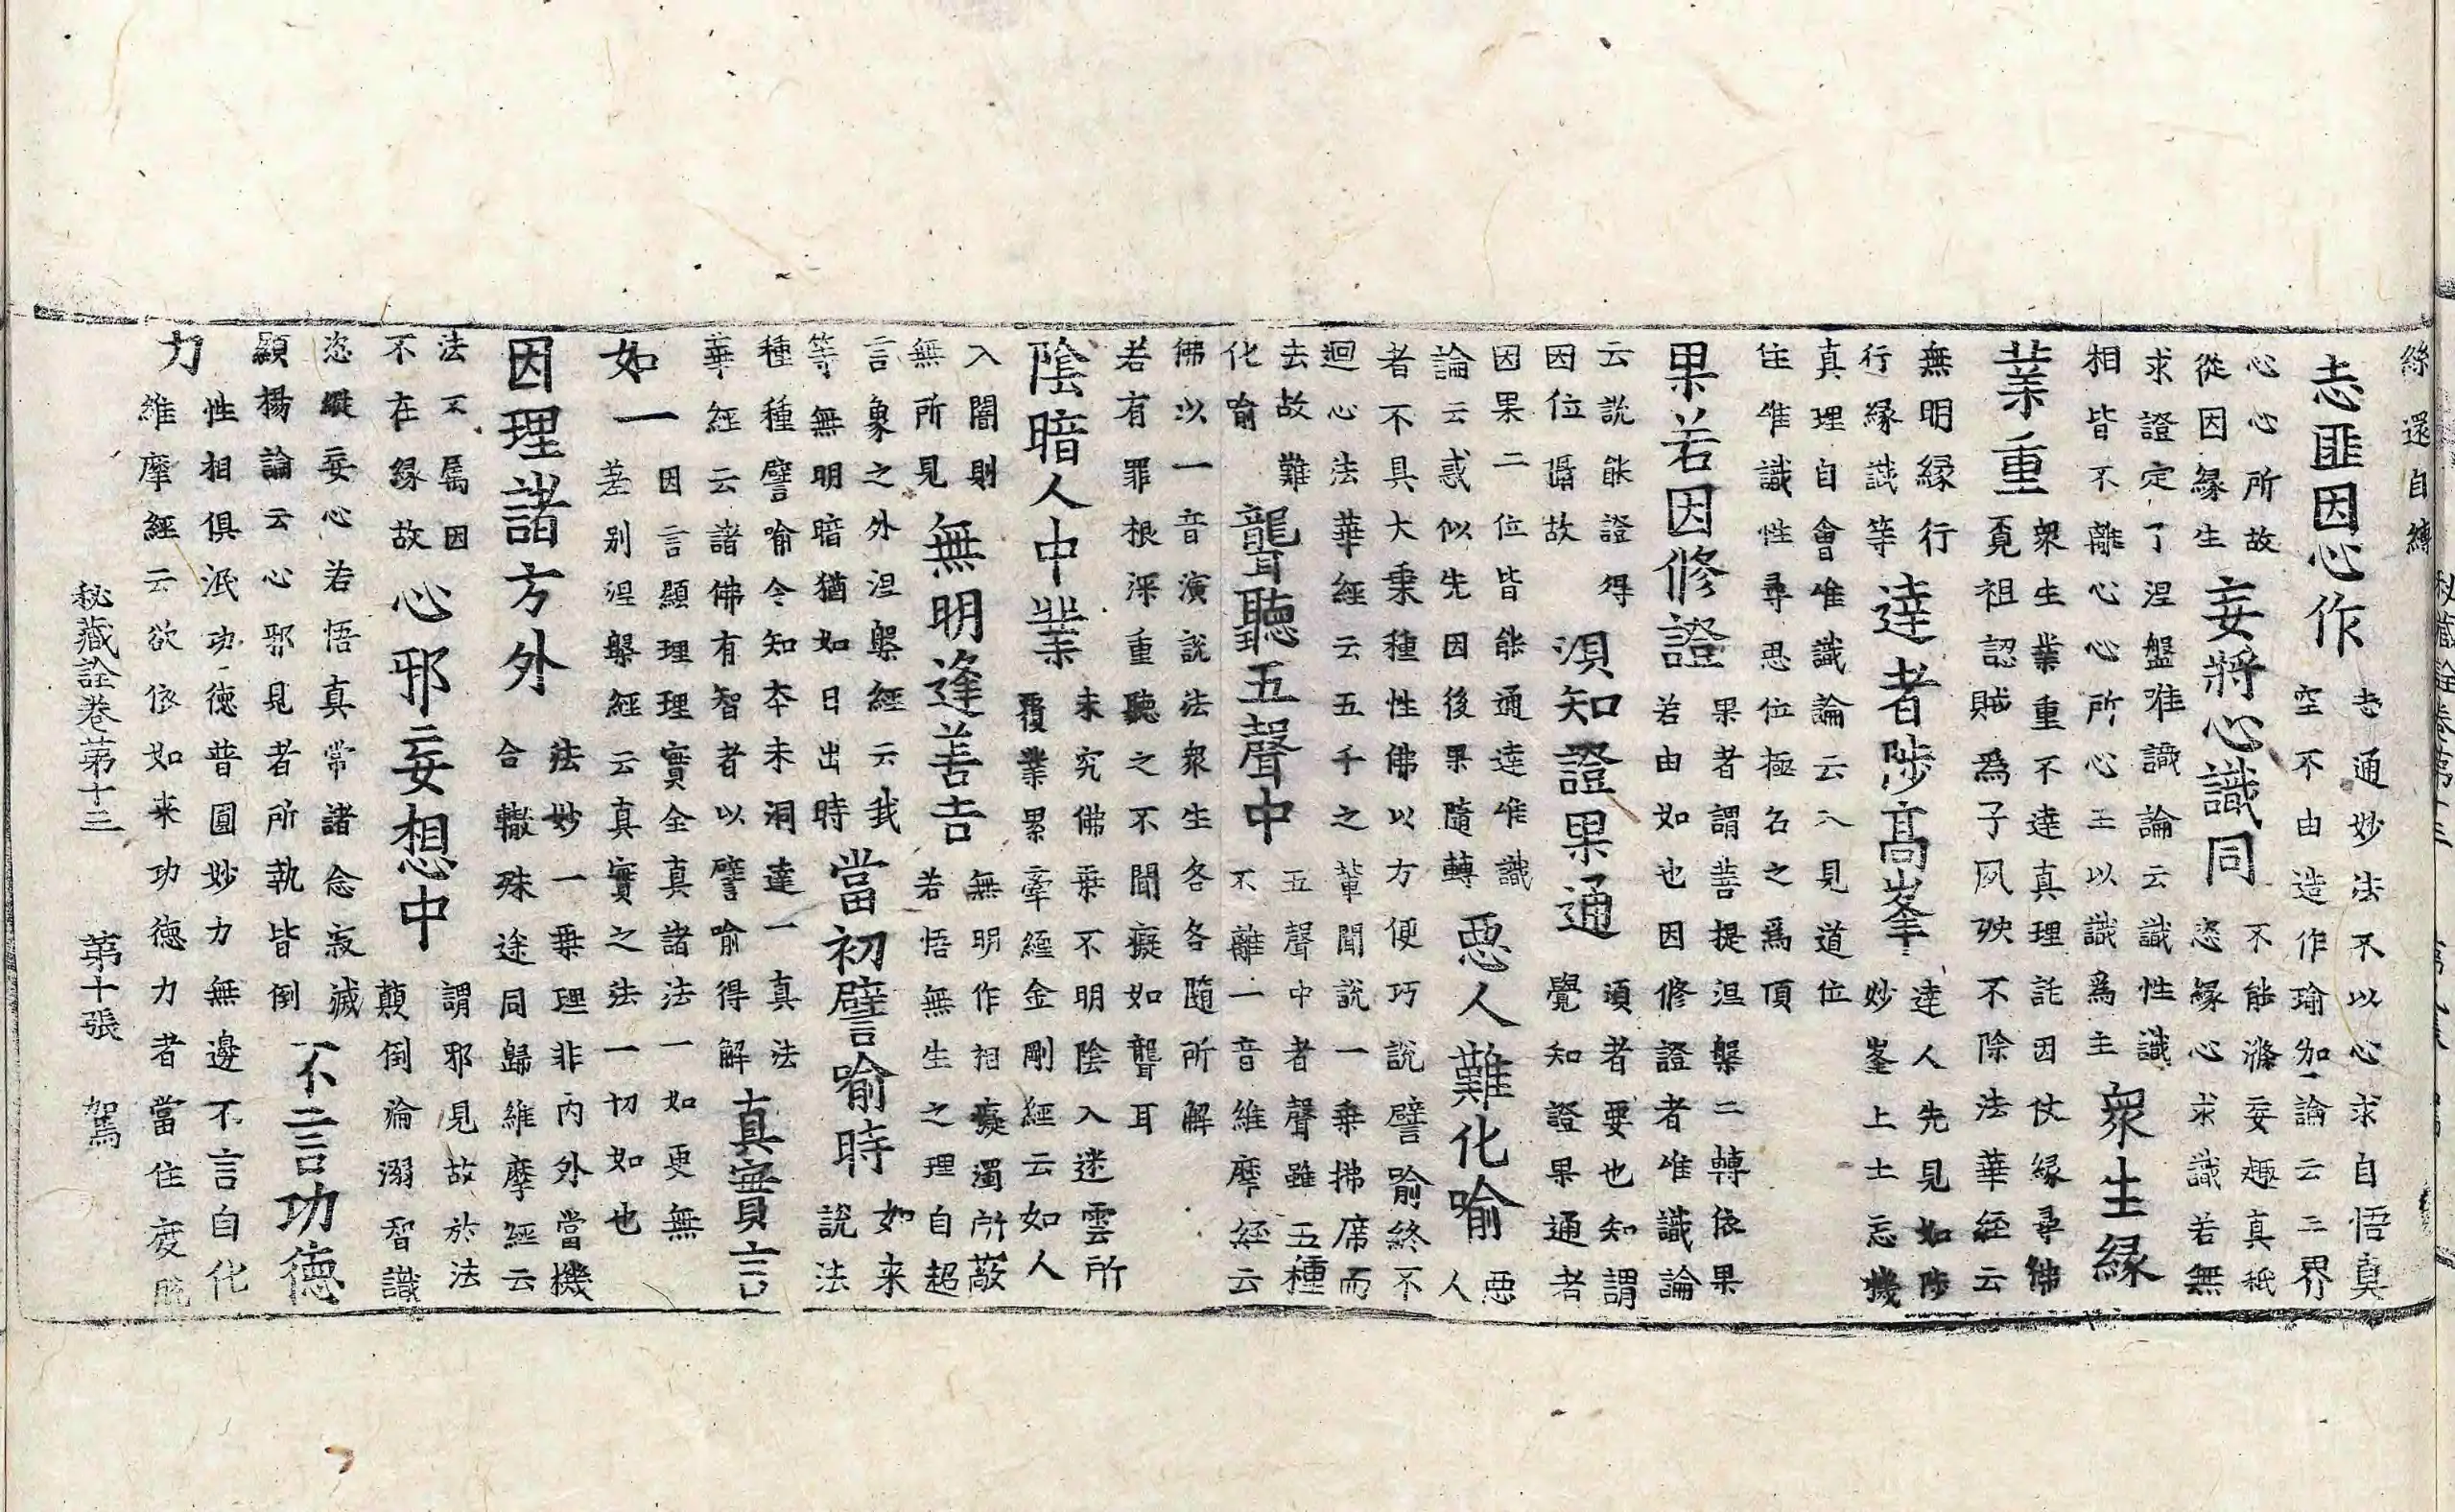 絲還自縛
志匪因心作 志通妙法不以心求自悟真
空不由造作瑜伽論云三界
心心所故
從因緣生 妄將心識同 不能滌妄趣真秖
恣緣心求識若無
求證定了涅盤唯識論云識性識
相皆不離心心所心王以識為主 衆生緣
業重 衆生業重不達真理託因仗緣尋佛
覔祖認賊為子夙殃不除法華経云
無明緣行
行緣識等 達者陟髙峯 達人先見如陟
妙峯上土忘機
真理自會唯識論云入見道位
住唯識性尋思位極名之為頂
果若因修證 果者謂菩提涅槃二轉依果
若由如也因修證者唯識論
云說能證得
因位僞故 須知證果通 須者要也知謂
覺知證果通者
因果二位皆能通達唯識
論云惑似先因後果隨轉 惡人難化喻 惡
人
者不具大乘種性佛以方便巧說譬喻終不
迴心法華經云五千之輩聞說一乘拂席而
去故難
化喻 聾聽五聲中 五聲中者聲雖五種
不離一音維摩経云
佛以一音演說法衆生各各隨所解
若有罪根深重聽之不聞癡如聾耳
陰暗人中業 未究佛乘不明陰入迷雲所
覆業累牽經金剛經云如人
入闇則
無所見 無明逢善吉 無明作相癡濁所蔽
若悟無生之理自超
言象之外涅槃經云我
等無明暗猶如日出時 當初譬喻時 如来
說法
種種譬喻令知本未洞達一真法
華経云諸佛有智者以譬喻得解 真實言
如一 因言顯理理實全真諸法一如更無
差別涅槃經云真實之法一切如也
因理諸方外 法妙一乘理非內外當機
合轍殊途同歸維摩經云
法不屬因
不在緣故 心邪妄想中 謂邪見故於法
顛倒淪溺智識
恣縱妄心若悟真常諸念寂滅
顯揚論云心邪見者所執皆倒 不言功德
力 性相俱泯功德普圓妙力無邊不言自化
維摩經云欲依如来功德力者當住度脫
秘藏詮卷第十三 第十張 駕